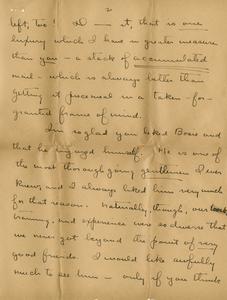 2
left, too! D — it, that is one
luxury which I have in greater measure
than you — a stack of accumulated
mail — which is always better than
getting it piecemeal in a taken-for-
granted frame of mind.
I'm so glad you liked Bose and
that he enjoyed himself. He is one of
the most thorough going gentlemen I ever
knew, and I always liked him very much
for that reason. Naturally, though, our
training and experiences were so diverse that
we never got beyond the point of very
good friends. I would like awfully
much to see him — only if you think